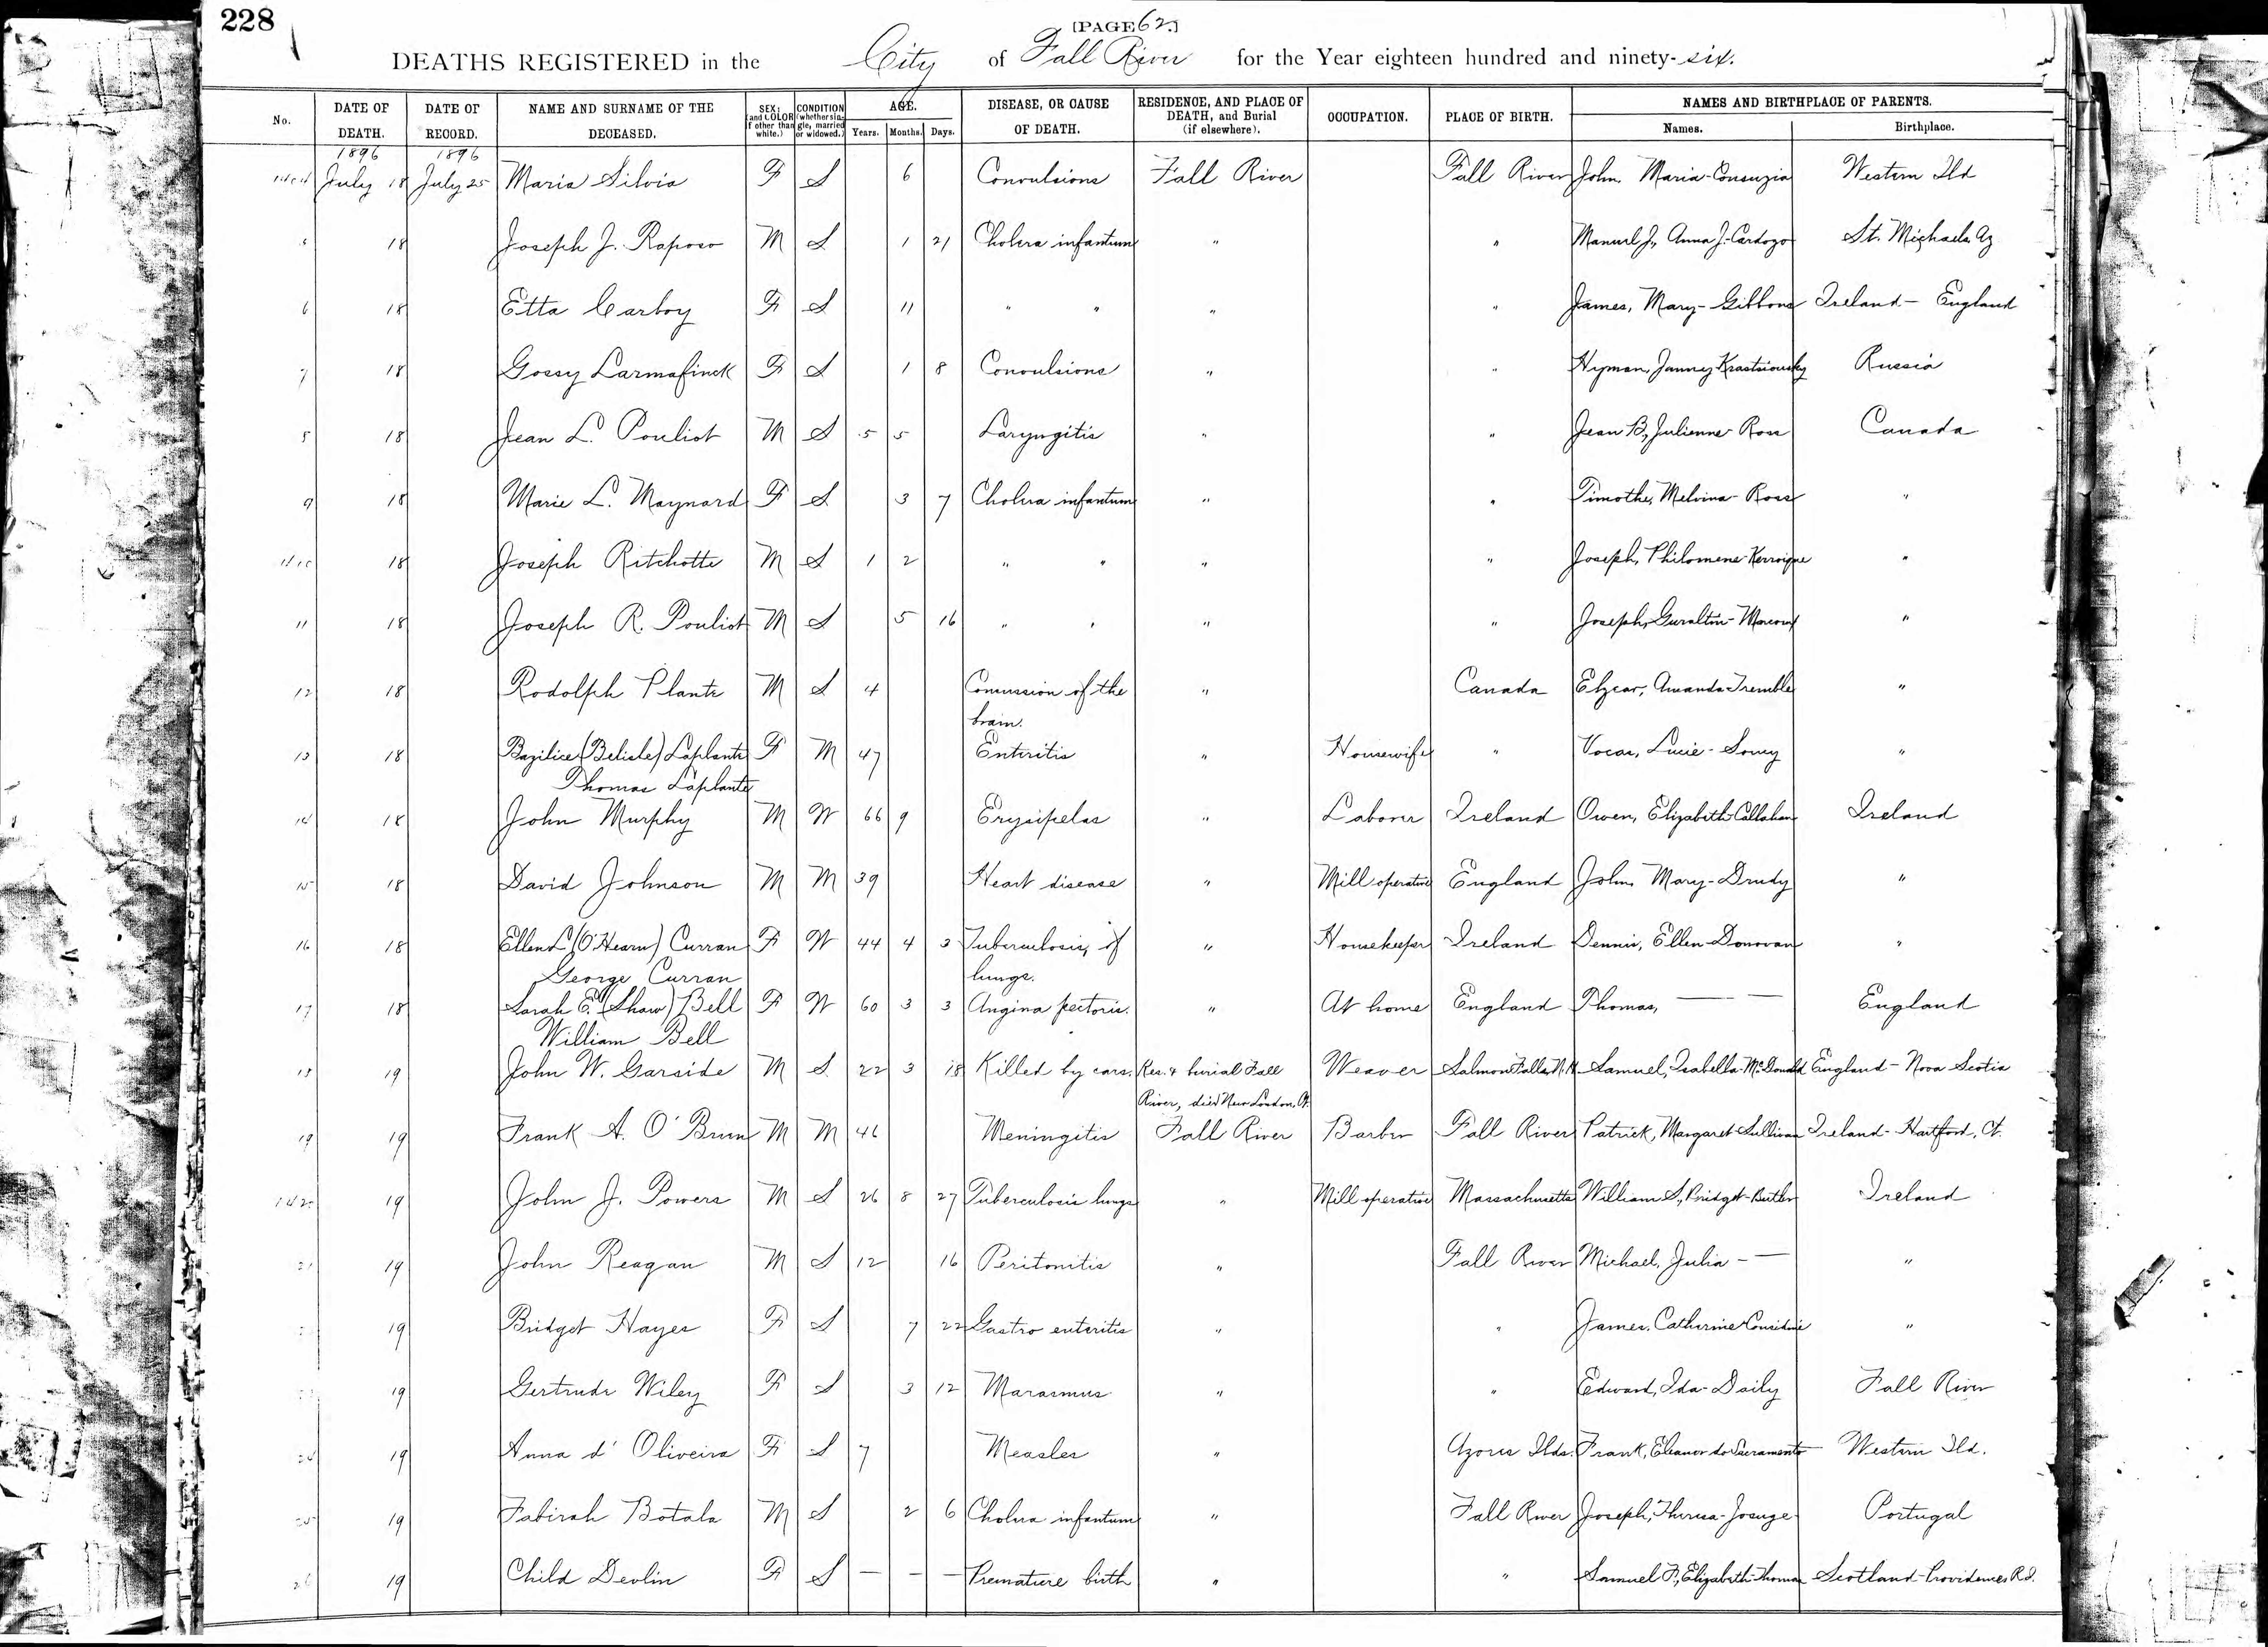 228
[PAGE 62.]
DEATHS REGISTERED in the City of Fall River for the Year eighteen hundred and ninety-six.
No. DATE OF DEATH. DATE OF RECORD. NAME AND SURNAME OF THE DECEASED. SEX; (and COLOR if other than white.) CONDITION (whether single, married or widowed.) AGE. Years. Months. Days. DISEASE, OR CAUSE OF DEATH. RESIDENCE, AND PLACE OF DEATH, and Burial (if elsewhere). OCCUPATION. PLACE OF BIRTH. NAMES AND BIRTHPLACE OF PARENTS. Names. Birthplace.
1896 1896
July 18 July 25 Maria Silvia F S 6 Convulsions Fall River Fall River John, Maria-Consuzia Western Ild
18 Joseph J. Raposo M S 1 21 Cholera infantum " " Manuel J., Anna J.-Cardozo St. Michaels Az
6 18 Etta Carboy F S 11 " " " " James, Mary-Gibbons Ireland - England
7 18 Gossy Larmafinck F S 1 8 Convulsions " " Hyman, Janny Russia
18 Jean L. Pouliot M S 5 5 Laryngitis " " Jean B., Julienne-Ross Canada
9 18 Marie L. Maynard F S 3 7 Cholera infantum " " Timothe, Melvina-Ross "
18 Joseph Ritchotte M S 1 2 " " " " Joseph, Philomene-Kerroigne "
11 18 Joseph R. Pouliot M S 5 16 " " " " Joseph, "
12 18 Rodolph Plante M S 4 Concussion of the " Canada Elzear, Amanda-Tremble "
brain.
13 18 Bazilice (Belisle) Laplante F M 47 Enteritis " Housewife " Lucie- "
Thomas Laplante
14 18 John Murphy M W 66 9 Erysipelas " Laborer Ireland Owen, Elizabeth-Callahan Ireland
15 18 David Johnson M M 39 Heart disease " Mill operative England John, Mary-Drudy "
16 18 Ellen L (O'Hearn) Curran F W 44 4 3 Tuberculosis, of " Housekeeper Ireland Dennis, Ellen-Donovan "
George Curran lungs.
17 18 Sarah E. (Shaw) Bell F W 60 3 3 Angina pectoris. " At home England Thomas, — — England
William Bell
18 19 John W. Garside M S 22 3 18 Killed by cars. Res. & burial Fall Weaver Salmon Falls, N.H. Samuel, Isabella-McDonald England - Nova Scotia
River, died New London, Ct.
19 19 Frank A. O'Brien M M 46 Meningitis Fall River Barber Fall River Patrick, Margaret-Sullivan Ireland - Hartford, Ct.
19 John J. Powers M S 26 8 27 Tuberculosis lungs " Mill operative Massachusetts William S., Bridget-Butler Ireland
21 19 John Reagan M S 12 16 Peritonitis " Fall River Michael, Julia - — "
19 Bridget Hayes F S 7 22 Gastro enteritis " " James, Catherine-Considine "
19 Gertrude Wiley F S 3 12 Marasmus " " Edward, Ida-Daily Fall River
19 Anna d'Oliveira F S 7 Measles " Azores Ilds. Frank, Eleanor do Sacramento Western Ild.
19 Fabirah Botala M S 2 6 Cholera infantum " Fall River Joseph, Theresa-Josuge Portugal
19 Child Devlin F S — — — Premature birth " " Samuel F., Elizabeth-Thomas Scotland - Providence, R.I.